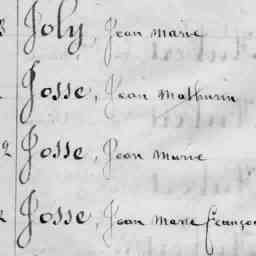 Joly, Jean Marie
Josse, Jean Mathurin
Josse, Jean Marie
Josse, Jean Marie Françoi